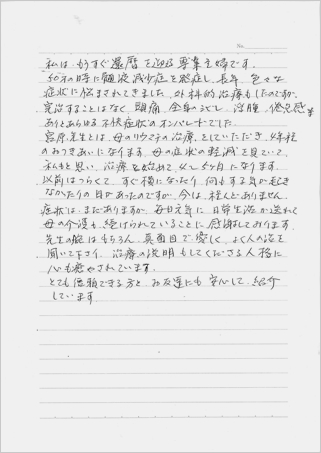 No.
私は、もうすぐ還暦を迎える専業主婦です。
50才の時に髄液減少症を発症し、長年、色々な
症状に悩まされてきました。外科的治療もしたのですが、
完治することはなく、頭痛、全身のシビレ、浮腫、倦怠感等
ありとあらゆる不快症状のオンパレードでした。
宮原先生とは、母のリウマチの治療をしていただき、4年程
のおつきあいになります。母の症状の軽減を見ていて、
私もと思い、治療を始めて、少し5ヶ月になります。
以前はつらくて、すぐ横になったり、何もする気が起き
なかったりの日があったのですが、今は、殆んどありません。
症状は、まだありますが、毎日元気に日常生活が送れて
母の介護も続けられていることに感謝しております。
先生の腕はもちろん、真面目で優しく、よく人の話を
聞いて下さり、治療の説明もしてくださる人格に
心も癒やされています。
とても信頼できる方と、お友達にも安心して紹介
しています。